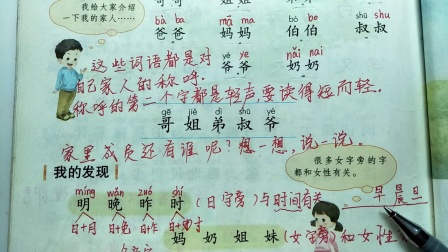 我给大家介绍
一下我的家人……
bà ba mā ma bó bo shū shu
爸爸 妈妈 伯伯 叔叔
这些词语都是对 yé ye nǎi nai
自己家人的称呼. 爷爷 奶奶
称呼的第二个字都是轻声,要读得短而轻.
gē jiě dì shū yé
哥 姐 弟 叔 爷
家里成员还有谁呢?想一想,说一说.
我的发现
很多女字旁的字
都和女性有关。
míng wǎn zuó shí
明 晚 昨 时 (日字旁)与时间有关 早 晨 旦
日+月 日+免 日+乍 日+寸
妈 奶 姐 妹 (女字旁)和女性